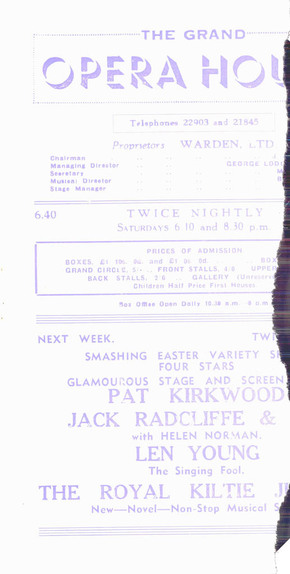 THE GRAND
OPERA HOU
Telephones 22903 and 21845
Proprietors WARDEN, LTD
Chairman
Managing Director GEORGE LODG
Secretary
Musical Director
Stage Manager
6.40 TWICE NIGHTLY
SATURDAYS 6.10 and 8.30 p.m.
PRICES OF ADMISSION
BOXES, and BOX
GRAND CIRCLE, FRONT STALLS, UPPER
BACK STALLS, GALLERY
Children Half Price First House
Box Office Open Daily
NEXT WEEK. TWI
SMASHING EASTER VARIETY SH
FOUR STARS
GLAMOUROUS STAGE AND SCREEN
PAT KIRKWOOD
JACK RADCLIFFE &
with HELEN NORMAN.
LEN YOUNG
The Singing Fool.
THE ROYAL KILTIE J
New—Novel—Non-Stop Musical S